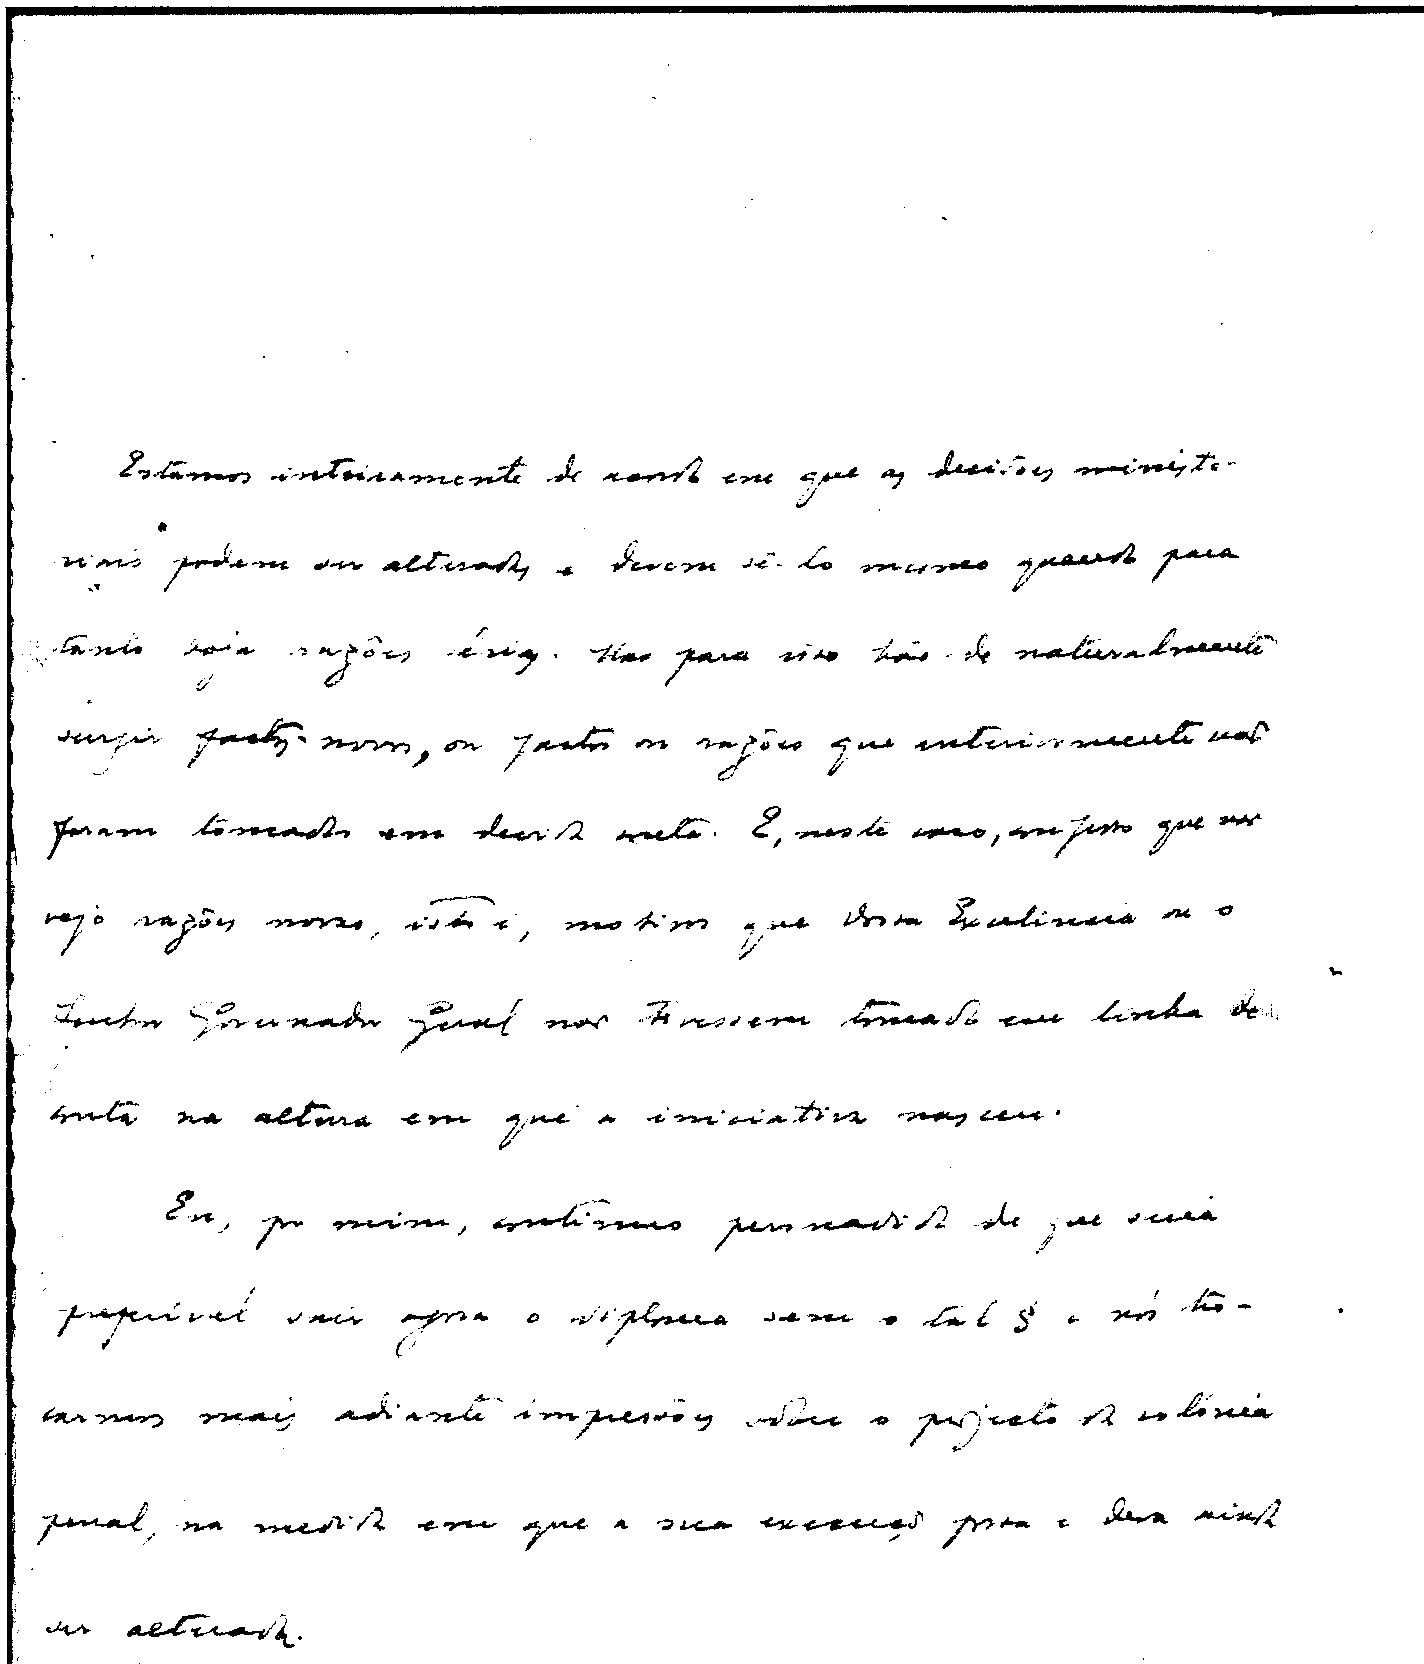 Estamos inteiramente de acordo em que as decisões ministe-
riais podem ser alteradas e devem sê-lo mesmo quando para
tanto haja razões sérias. Mas para isso hão-de naturalmente
surgir factos novos, ou factos ou razões que anteriormente não
foram tomados em devida conta. E, neste caso, confesso que não
vejo razões novas, isto é, motivos que Vossa Excelência ou o
Senhor Governador Geral não tivessem tomado em linha de
conta na altura em que a iniciativa nasceu.
Eu, por mim, continuo persuadido de que seria
preferível sair agora o diploma sem o tal § e nós tro-
carmos mais adiante impressões sobre o projecto da colónia
penal, na medida em que a sua execução possa e deva ainda
ser alterada.